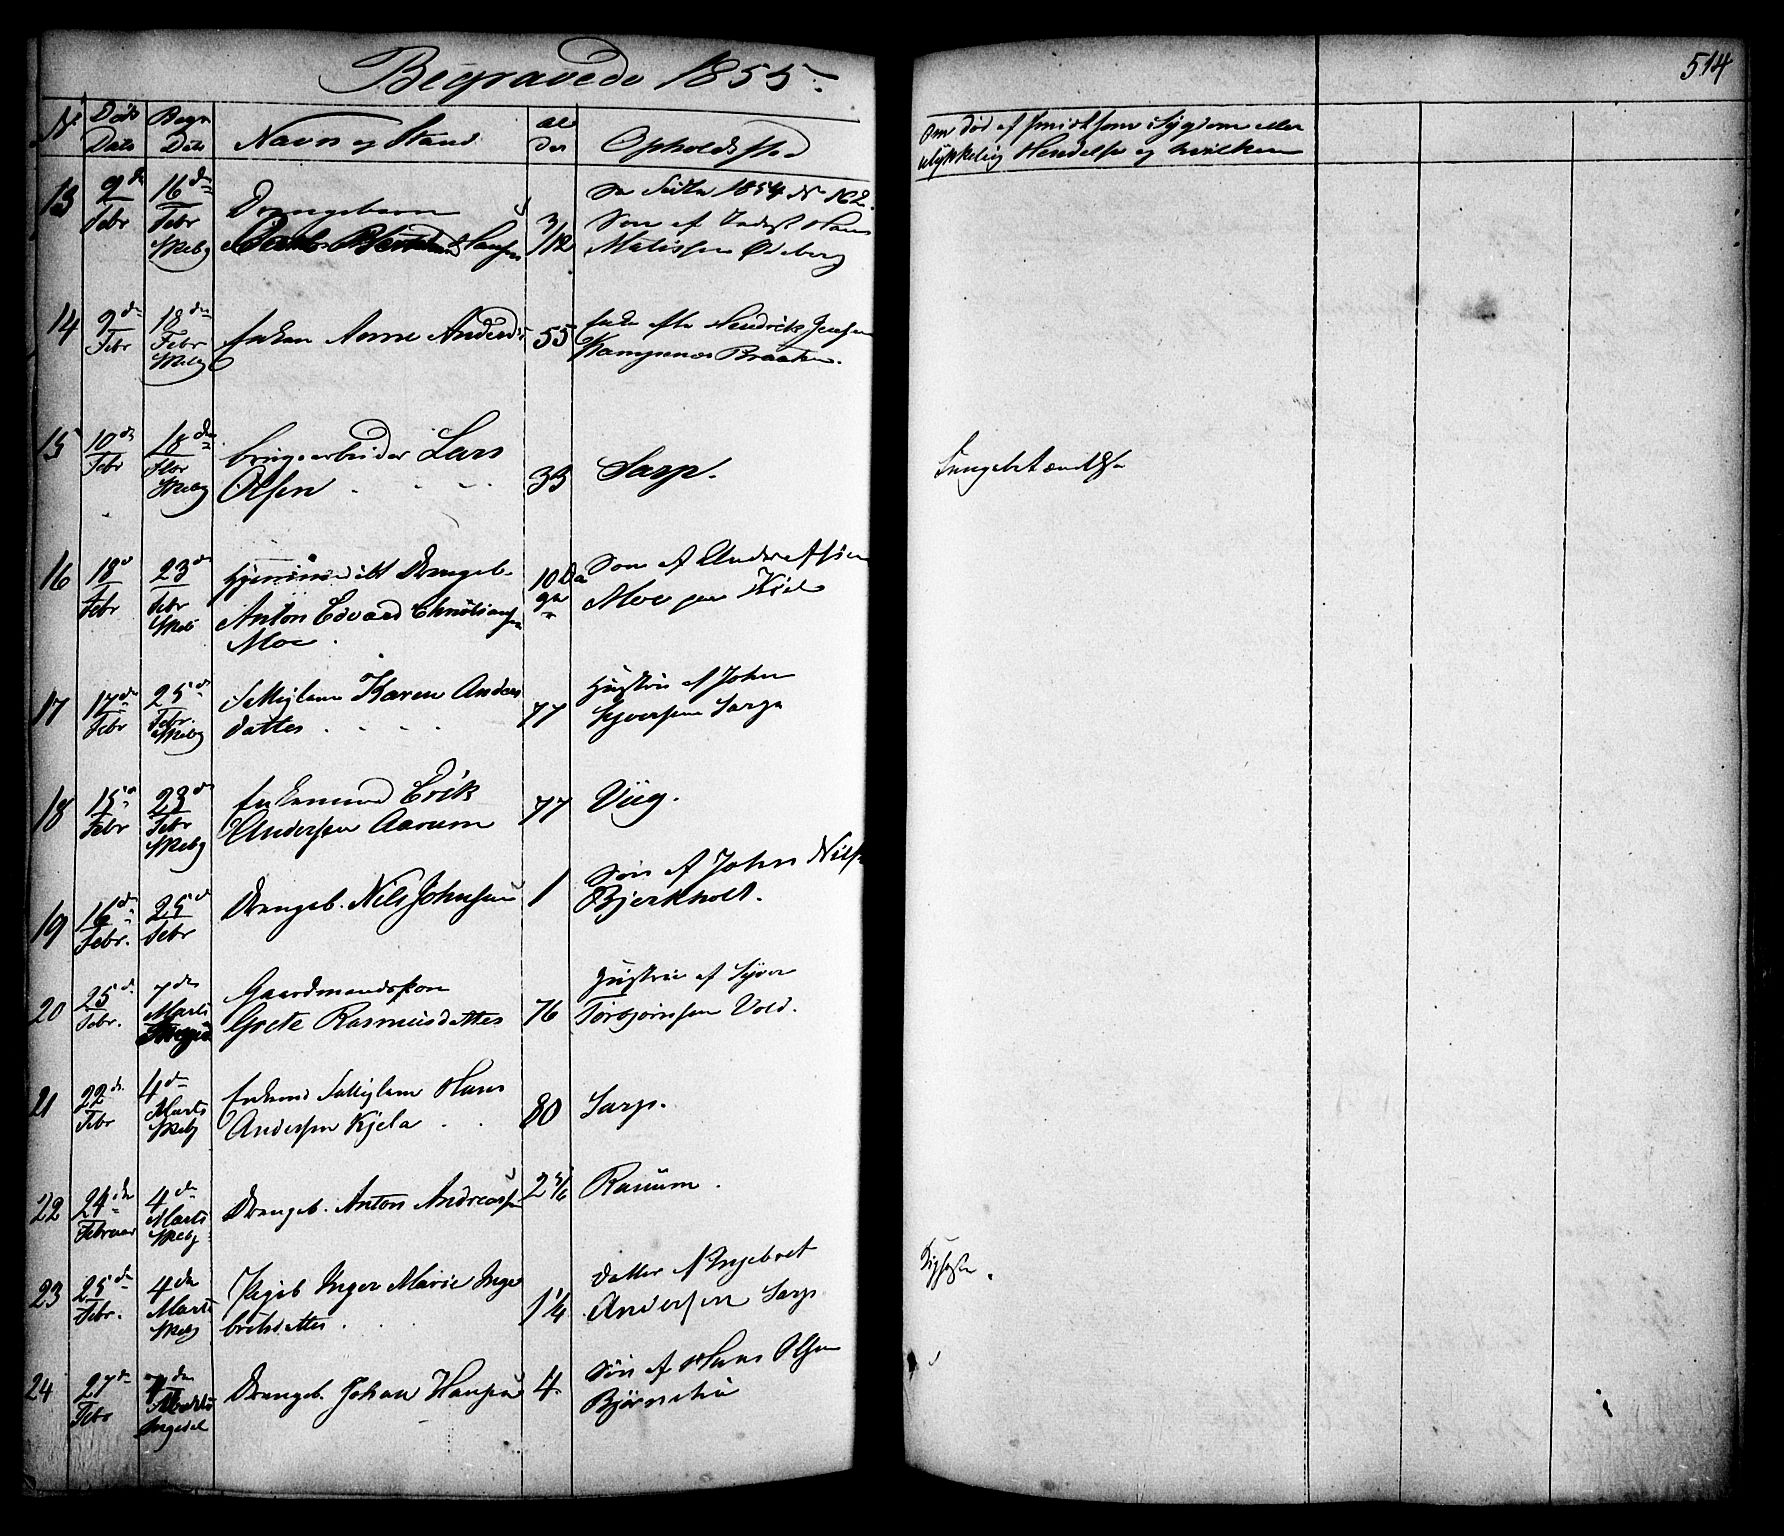 Begravede 1855
514
Nr. Døds Dato Begr Dato Navn og Stand Al der Opholdssted
Om død af smitsom Sygdom eller
ulykkelig Hendelse og hvilken
13 9de Febr 16de Febr Skeby Drengebarn Hansen 3/12 Se Sidste 1854 N 162.
Søn af Hans
Matissen Ødeberg
14 9de Febr 18de Febr Skeby Enken Anne Andersd 55 Enke efter Hendrik Jensen
Kampenes Braaten.
15 10de Febr 18de Febr Skeby brugsarbeider Lars
Olsen 33 Sarp. Lungebetændelse
16 18d Febr 23d Febr Skeb Hjemmedøbt Drengeb.
Anton Edvard Christiansen
Moe 10 Da
ge Søn af
Moe paa
17 17de Febr 25d Febr Skeby Fattiglem Karen Anders
datter 77 Hustru af John
Syversen Sarp
18 15d Febr 23d Febr Skeby Enkemand Erik
Andersen Aarum 77 Viig.
19 16de Febr. 25d Febr Drengeb. Nils Johnsen 1 Søn af John Nilsen
Bjerkholt.
20 25d Febr. 7de Marts Gaardmandskone
Grete Rasmusdatter 76 Hustru af Syver
Torbjørnsen Vold.
21 22de Febr 4de Marts Skeby Enkemd Fattiglem Hans
Andersen Kjela 80 Sarp.
22 24de Februar 4de Marts Skeby Drengeb. Anton Andreassen 2 5/6 Ranum.
23 25de Febr. 4de Marts Skeby Pigeb Inger Marie Inge
bretsdatter 1 1/4 Datter af Ingebret
Andersen Sarp
24 27de Febr 7de Marts Ingedal Drengeb. Johan Hansen 4 Søn af Hans Olsen